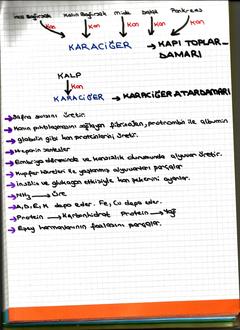 İnce Bağırsak Kalın Bağırsak mide Dalak Pankreas
Kan Kan Kan Kan Kan
KARACİĞER → KAPI TOPLAR-
DAMARI
KALP
Kan
KARACİĞER → KARACİĞER ATARDAMARI
→ Safra sıvısını üretir.
→ Kanın pıhtılaşmasını sağlayan fibrinojen, protrombin ile albumin
→ globulin gibi kan proteinlerini üretir.
→ Heparin sentezler
→ Embriyo döneminde ve kansızlık durumunda alyuvar üretir.
→ Kupffer hücreleri ile yaşlanmış alyuvarları parçalar
→ İnsülin ve glukagon etkisiyle kan şekerini ayarlar.
→ NH₃ → Üre
→ A, D, E, K depo eder. Fe, Cu depo eder.
→ Protein → Karbonhidrat Protein → Yağ
→ Eşey hormonlarının fazlasını parçalar.